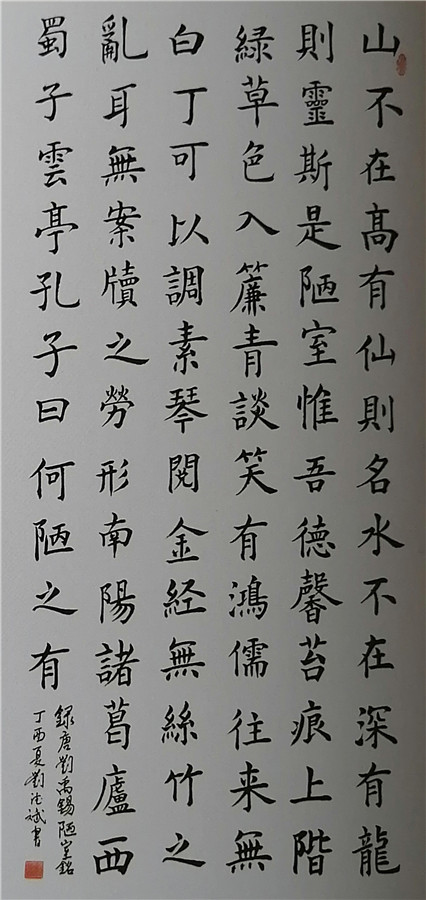 山不在高有仙則名水不在深有龍
則靈斯是陋室惟吾德馨苔痕上階
緑草色入簾青談笑有鴻儒往来無
白丁可以調素琴閱金経無絲竹之
亂耳無案牘之勞形南陽諸葛廬西
蜀子雲亭孔子曰何陋之有
録唐劉禹錫陋室銘
丁酉夏劉書